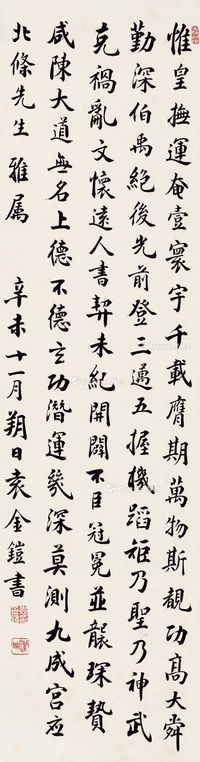 惟皇撫運奄壹寰宇千載膺期萬物斯覩功高大舜
勤深伯禹絕後光前登三邁五握機蹈矩乃聖乃神武
克禍亂文懷遠人書契未紀開闢不臣冠冕並襲琛贄
咸陳大道無名上德不德玄功潛運幾深莫測九成宮应
北條先生雅屬
辛未十一月朔日袁金鎧書